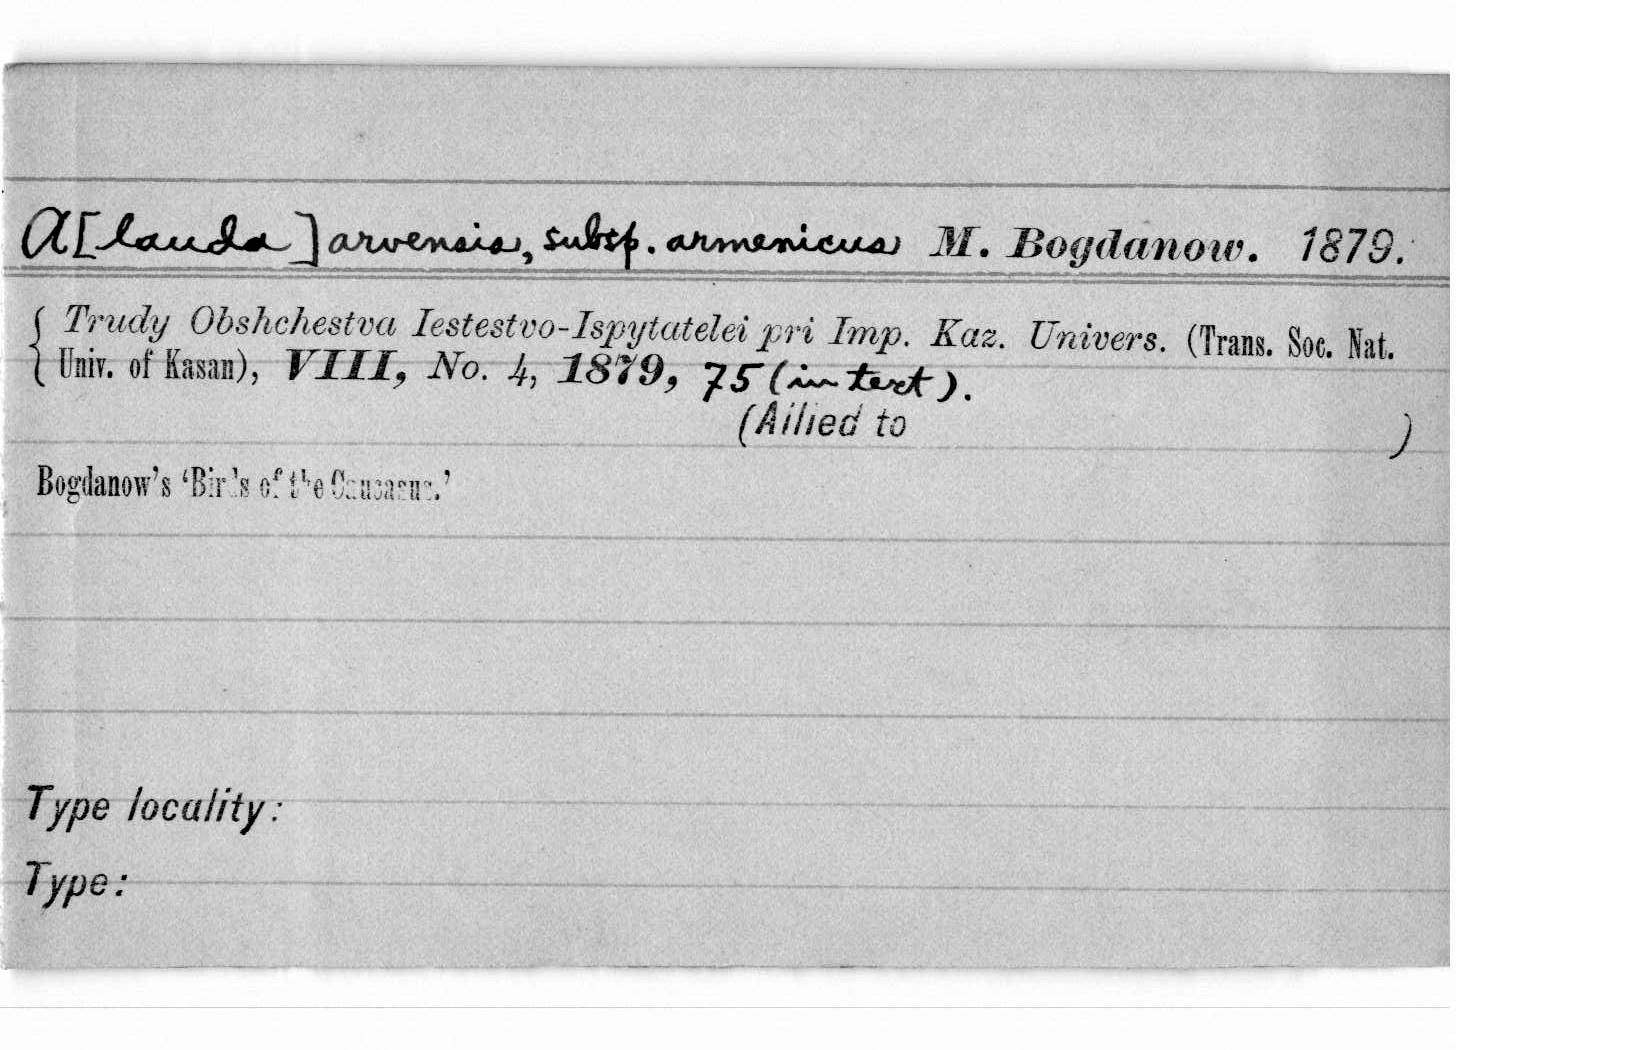 A[lauda] arvensis, subsp. armenicus M. Bogdanow. 1879.
{ Trudy Obshchestva Iestestvo-Ispytatelei pri Imp. Kaz. Univers. (Trans. Soc. Nat.
Univ. of Kasan), VIII, No. 4, 1879, 75 (in text).
(Allied to )
Bogdanow's 'Birds of the Caucasus.'
Type locality:
Type: